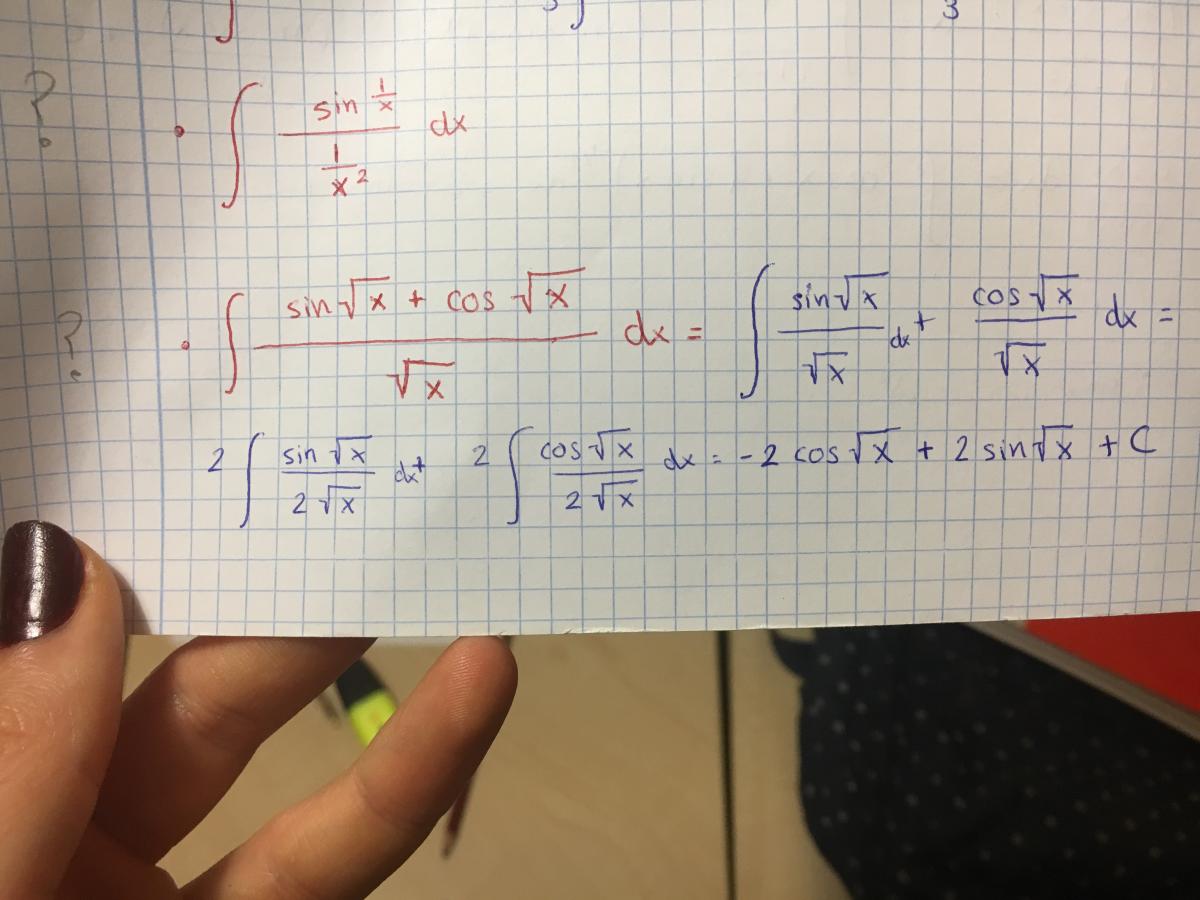 ∫ 3 ∫ 3
? • ∫ (sin 1/x)/(1/x²) dx
? • ∫ (sin √x + cos √x)/√x dx = ∫ (sin √x)/√x dx + (cos √x)/√x dx =
2 ∫ (sin √x)/(2 √x) dx + 2 ∫ (cos √x)/(2 √x) dx = -2 cos √x + 2 sin √x + C